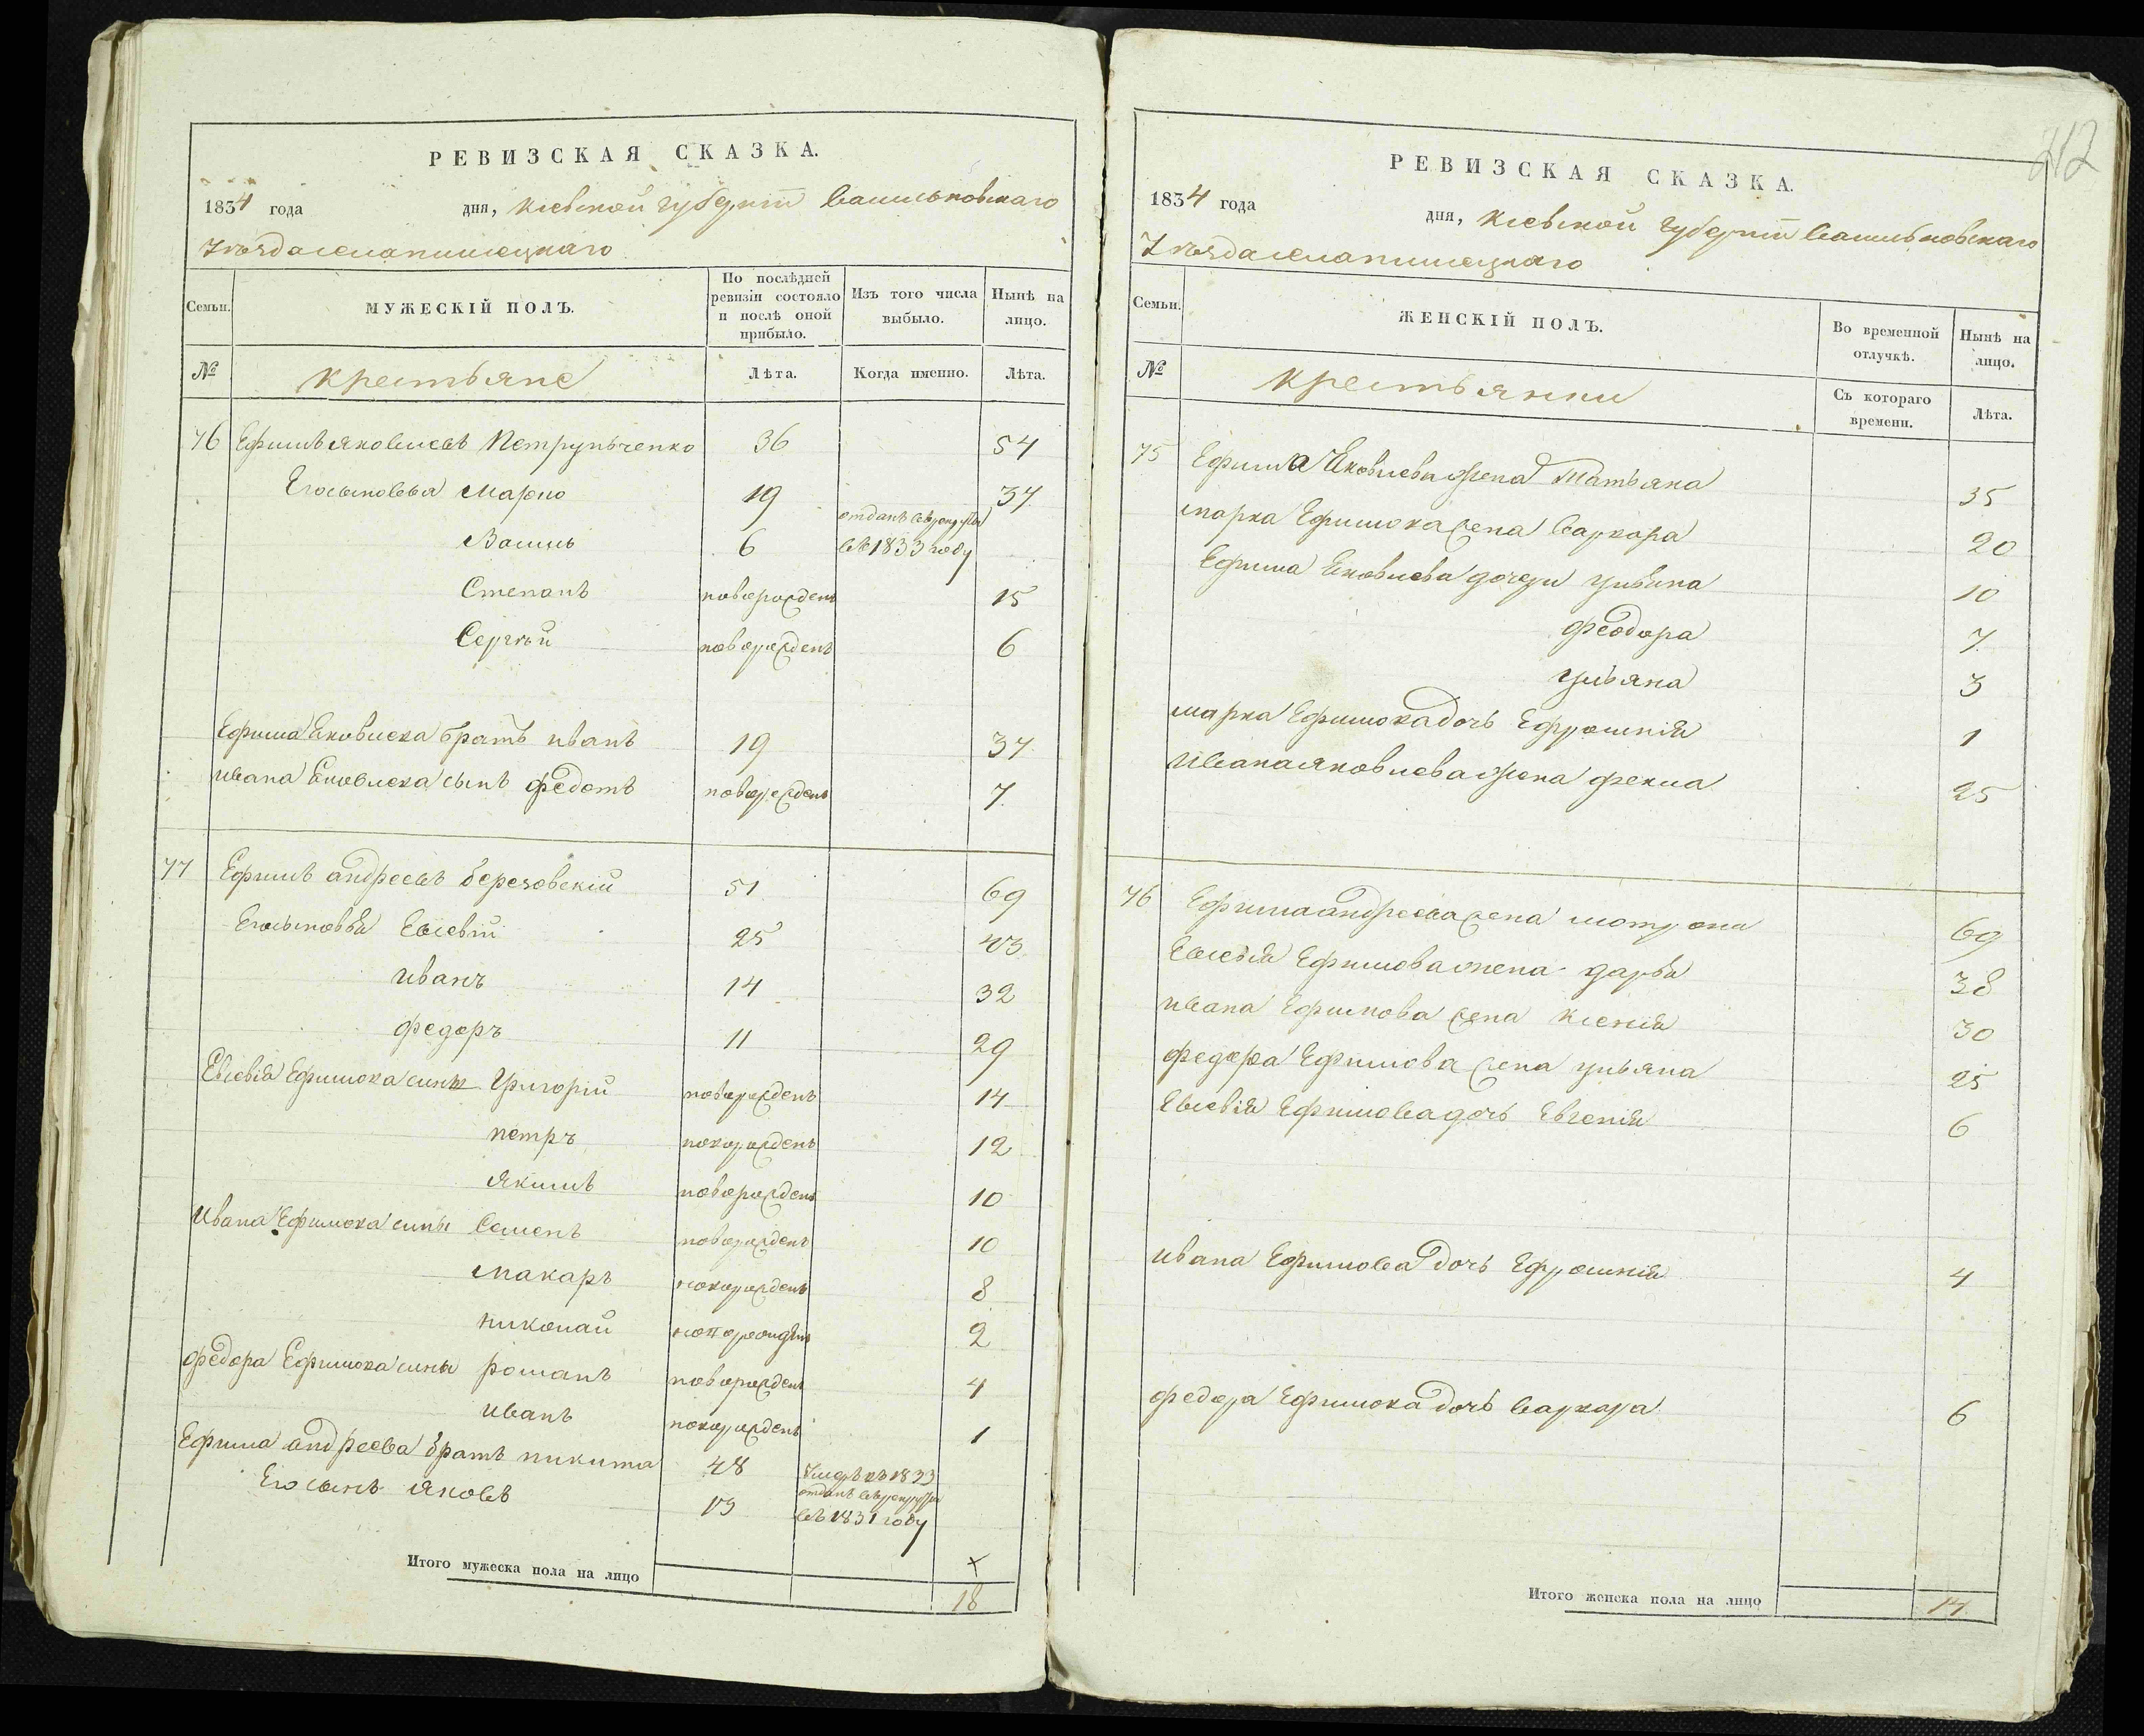 РЕВИЗСКАЯ СКАЗКА.
1834 года дня, Киевской губернїи Васильковскаго
Уѣзда села
Семьи. МУЖЕСКІЙ ПОЛЪ. По послѣдней ревизіи состояло и послѣ оной прибыло. Изъ того числа выбыло. Нынѣ на лицо.
№ Крестьяне Лѣта. Когда именно. Лѣта.
76 Ефимъ Яковлевъ Петруньченко 36 54
Его сыновья Марко 19 37
отданъ въ рекруты
Василь 6 въ 1833 году
Степанъ новорожденъ 15
Сергѣй новорожденъ 6
Ефима Яковлева братъ иванъ 19 37
ивана Яковлева сынъ федотъ новорожденъ 7
77 Ефимъ андреевъ березовскій 51 69
Его сыновья Евсевій 25 43
иванъ 14 32
федоръ 11 29
Евсевія Ефимова сины Григорій новорожденъ 14
петръ новорожденъ 12
Якимъ новорожденъ 10
Ивана Ефимова сины Семенъ новорожденъ 10
Макаръ новорожденъ 8
николай новорожденъ 2
федора Ефимова сины романъ новорожденъ 4
иванъ новорожденъ 1
Ефима андреева братъ никита 48 Умеръ въ 1833
Его сынъ Яковъ 13 отданъ въ рекруты
въ 1831 году
Итого мужеска пола на лицо 18
212
РЕВИЗСКАЯ СКАЗКА.
1834 года дня, Киевской губернїи Васильковскаго
Уѣзда села
Семьи. ЖЕНСКІЙ ПОЛЪ. Во временной отлучкѣ. Нынѣ на лицо.
№ Крестьянки Съ котораго времени. Лѣта.
75 Ефима Яковлева жена Татьяна 35
марка Ефимова жена Варвара 20
Ефима Яковлева дочери ульяна 10
феодора 7
ульяна 3
марка Ефимова дочь Ефросинія 1
Ивана яковлева жена фекла 25
76 Ефима андреева жена мотрона 69
Евсевія Ефимова жена дарья 38
ивана Ефимова жена Ксенія 30
федора Ефимова жена ульяна 25
Евсевія Ефимова дочь Евгенія 6
ивана Ефимова дочь Ефросинія 4
федора Ефимова дочь Варвара 6
Итого женска пола на лицо 14